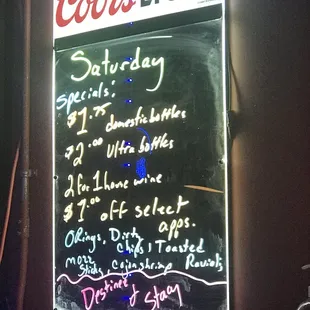 Coors
Saturday
Specials:
$1.75 domestic bottles
$2.00 Ultra bottles
2 for 1 home wine
$1.00 off select
apps.
O Rings, Dirty
Chips, Toasted
Mozz Ravioli
Sticks, Cajun shrimp
Destined
Stay